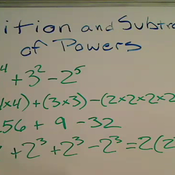 ition and Subtra
of Powers
⁴ + 3² - 2⁵
4×4) + (3×3) - (2×2×2×2
56 + 9 - 32
³ + 2³ + 2³ - 2³ = 2(2